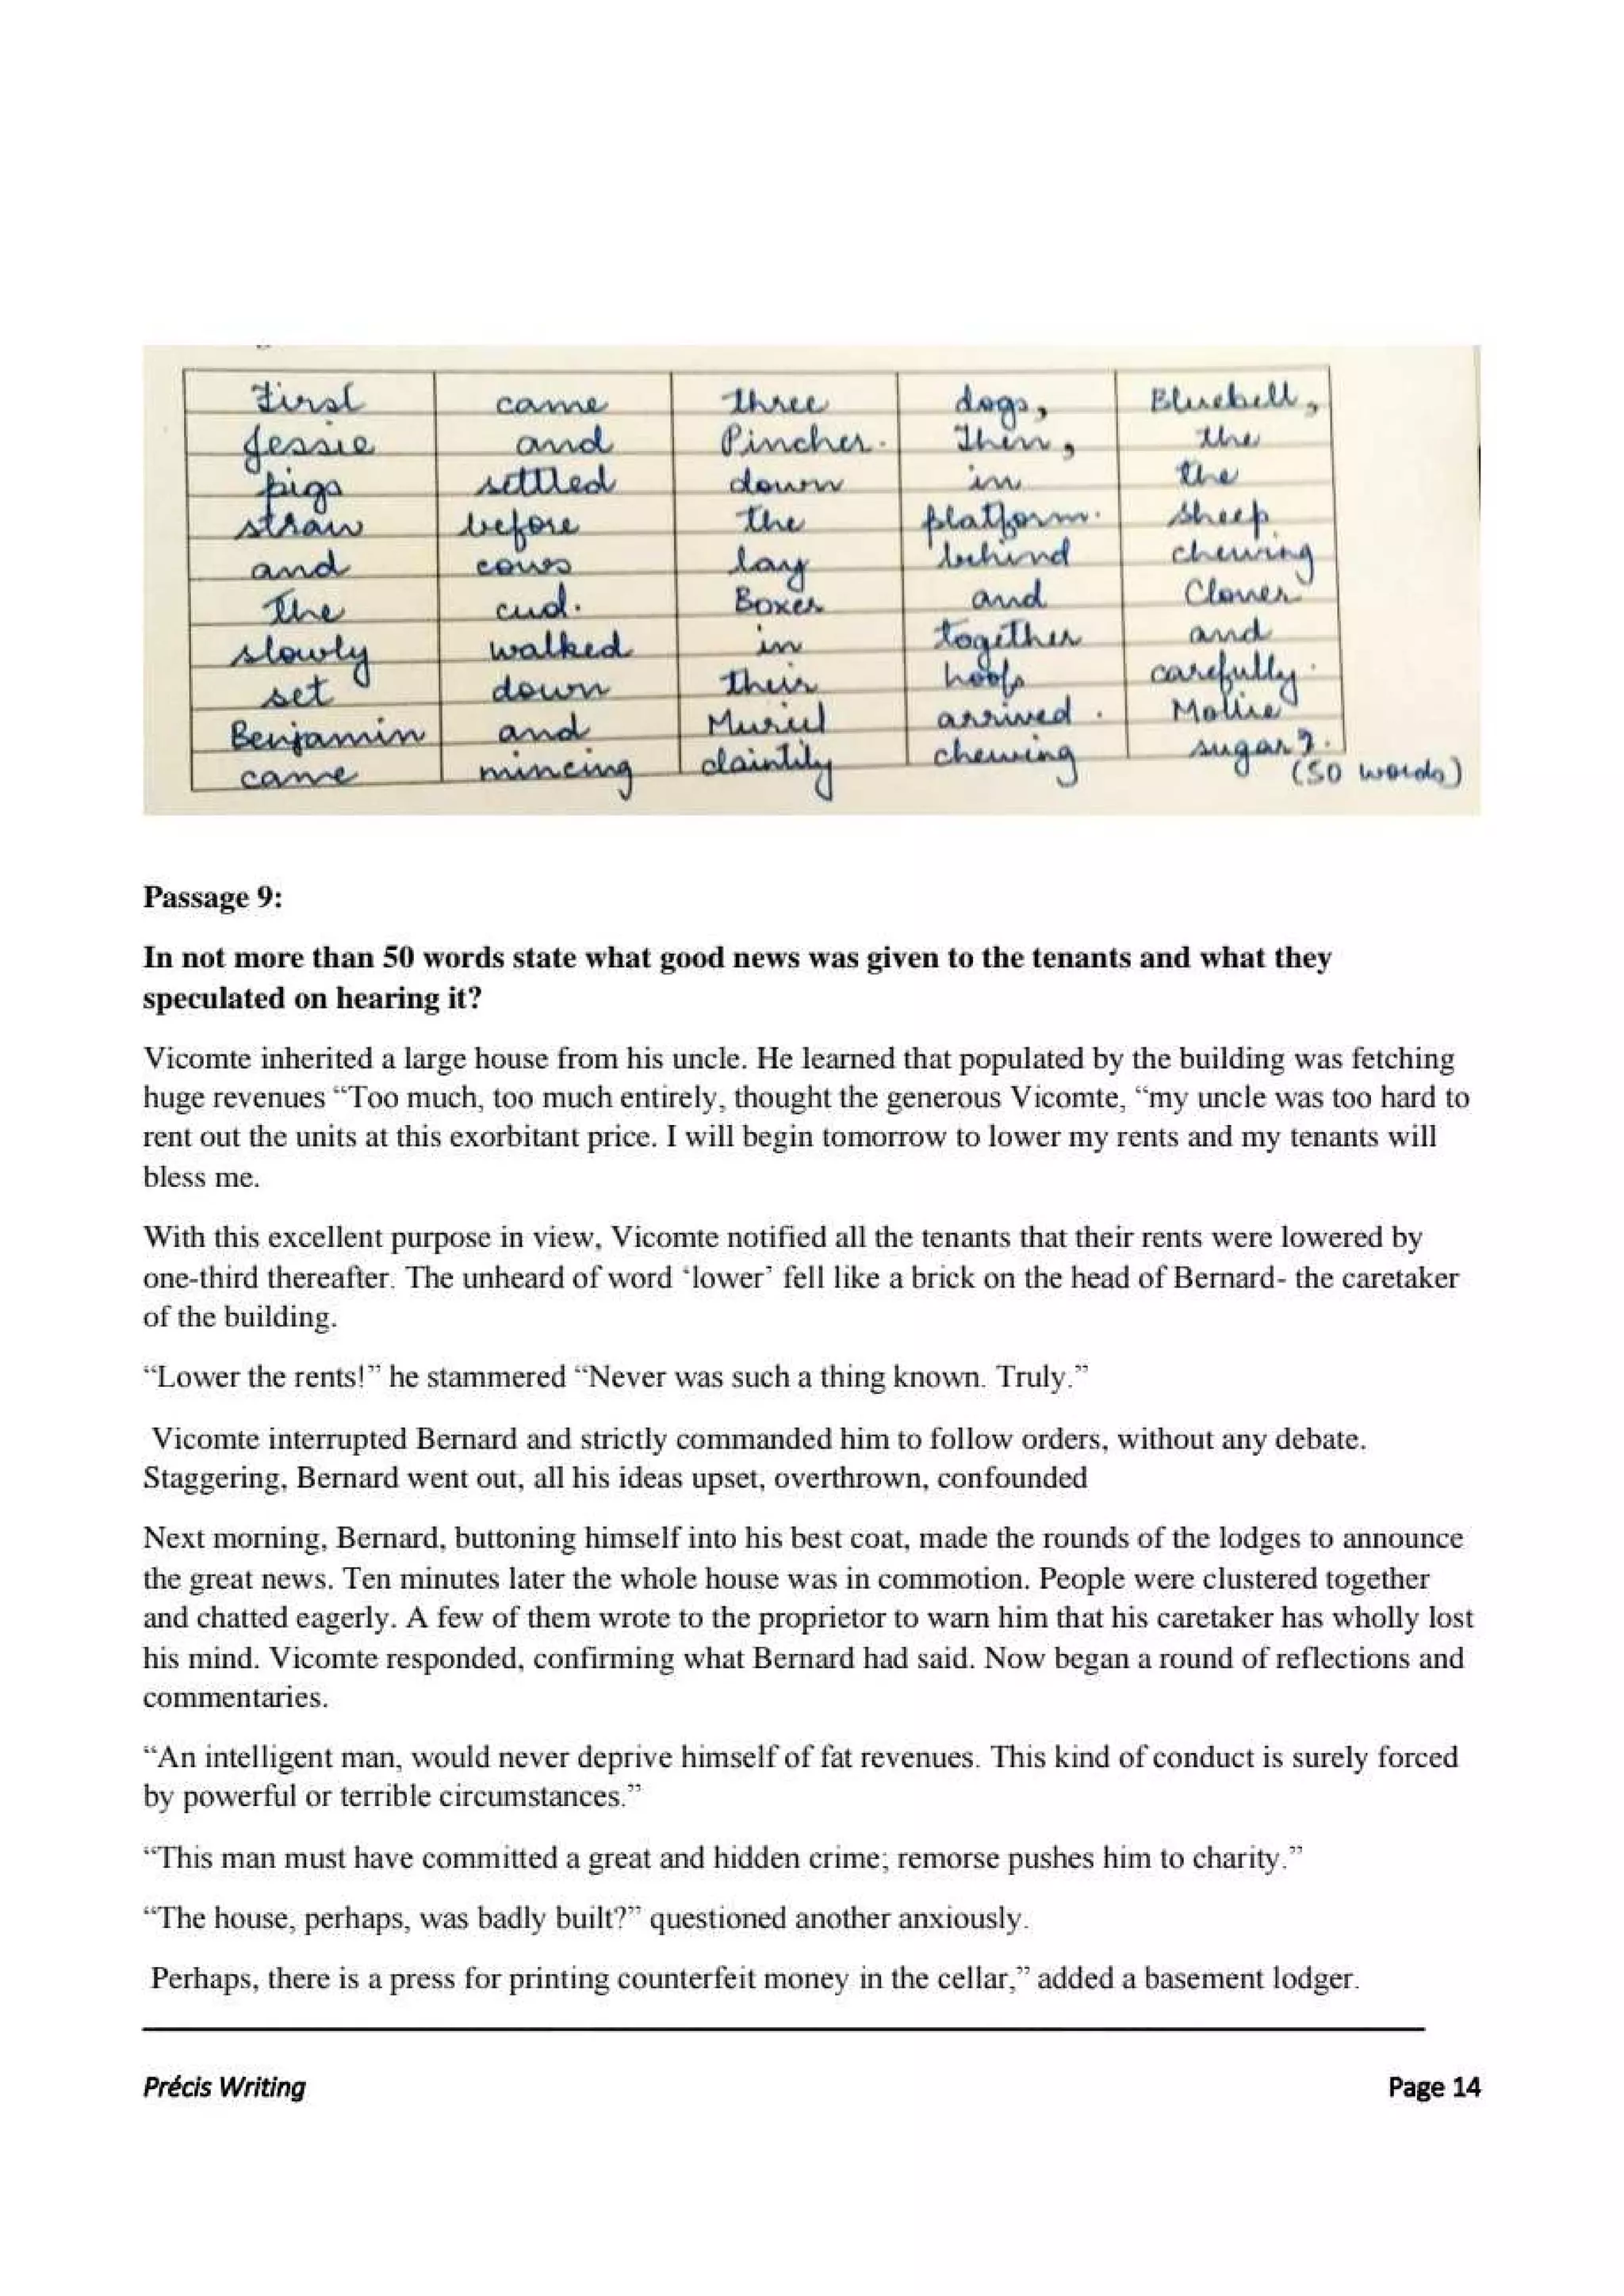 First came three dogs, Bluebell,
Jessie and Pincher. Then, the
pigs settled down in the
straw before the platform. sheep
and cows lay behind chewing
The cud. Boxer and Clover
slowly walked in together and
set down their hoofs carefully.
Benjamin and Muriel arrived. Mollie
came mincing daintily chewing sugar.
(50 words)
Passage 9:
In not more than 50 words state what good news was given to the tenants and what they
speculated on hearing it?
Vicomte inherited a large house from his uncle. He learned that populated by the building was fetching
huge revenues “Too much, too much entirely, thought the generous Vicomte, “my uncle was too hard to
rent out the units at this exorbitant price. I will begin tomorrow to lower my rents and my tenants will
bless me.
With this excellent purpose in view, Vicomte notified all the tenants that their rents were lowered by
one-third thereafter. The unheard of word ‘lower’ fell like a brick on the head of Bernard- the caretaker
of the building.
“Lower the rents!” he stammered “Never was such a thing known. Truly.”
Vicomte interrupted Bernard and strictly commanded him to follow orders, without any debate.
Staggering, Bernard went out, all his ideas upset, overthrown, confounded
Next morning, Bernard, buttoning himself into his best coat, made the rounds of the lodges to announce
the great news. Ten minutes later the whole house was in commotion. People were clustered together
and chatted eagerly. A few of them wrote to the proprietor to warn him that his caretaker has wholly lost
his mind. Vicomte responded, confirming what Bernard had said. Now began a round of reflections and
commentaries.
“An intelligent man, would never deprive himself of fat revenues. This kind of conduct is surely forced
by powerful or terrible circumstances.”
“This man must have committed a great and hidden crime; remorse pushes him to charity.”
“The house, perhaps, was badly built?” questioned another anxiously.
Perhaps, there is a press for printing counterfeit money in the cellar,” added a basement lodger.
Précis Writing Page 14